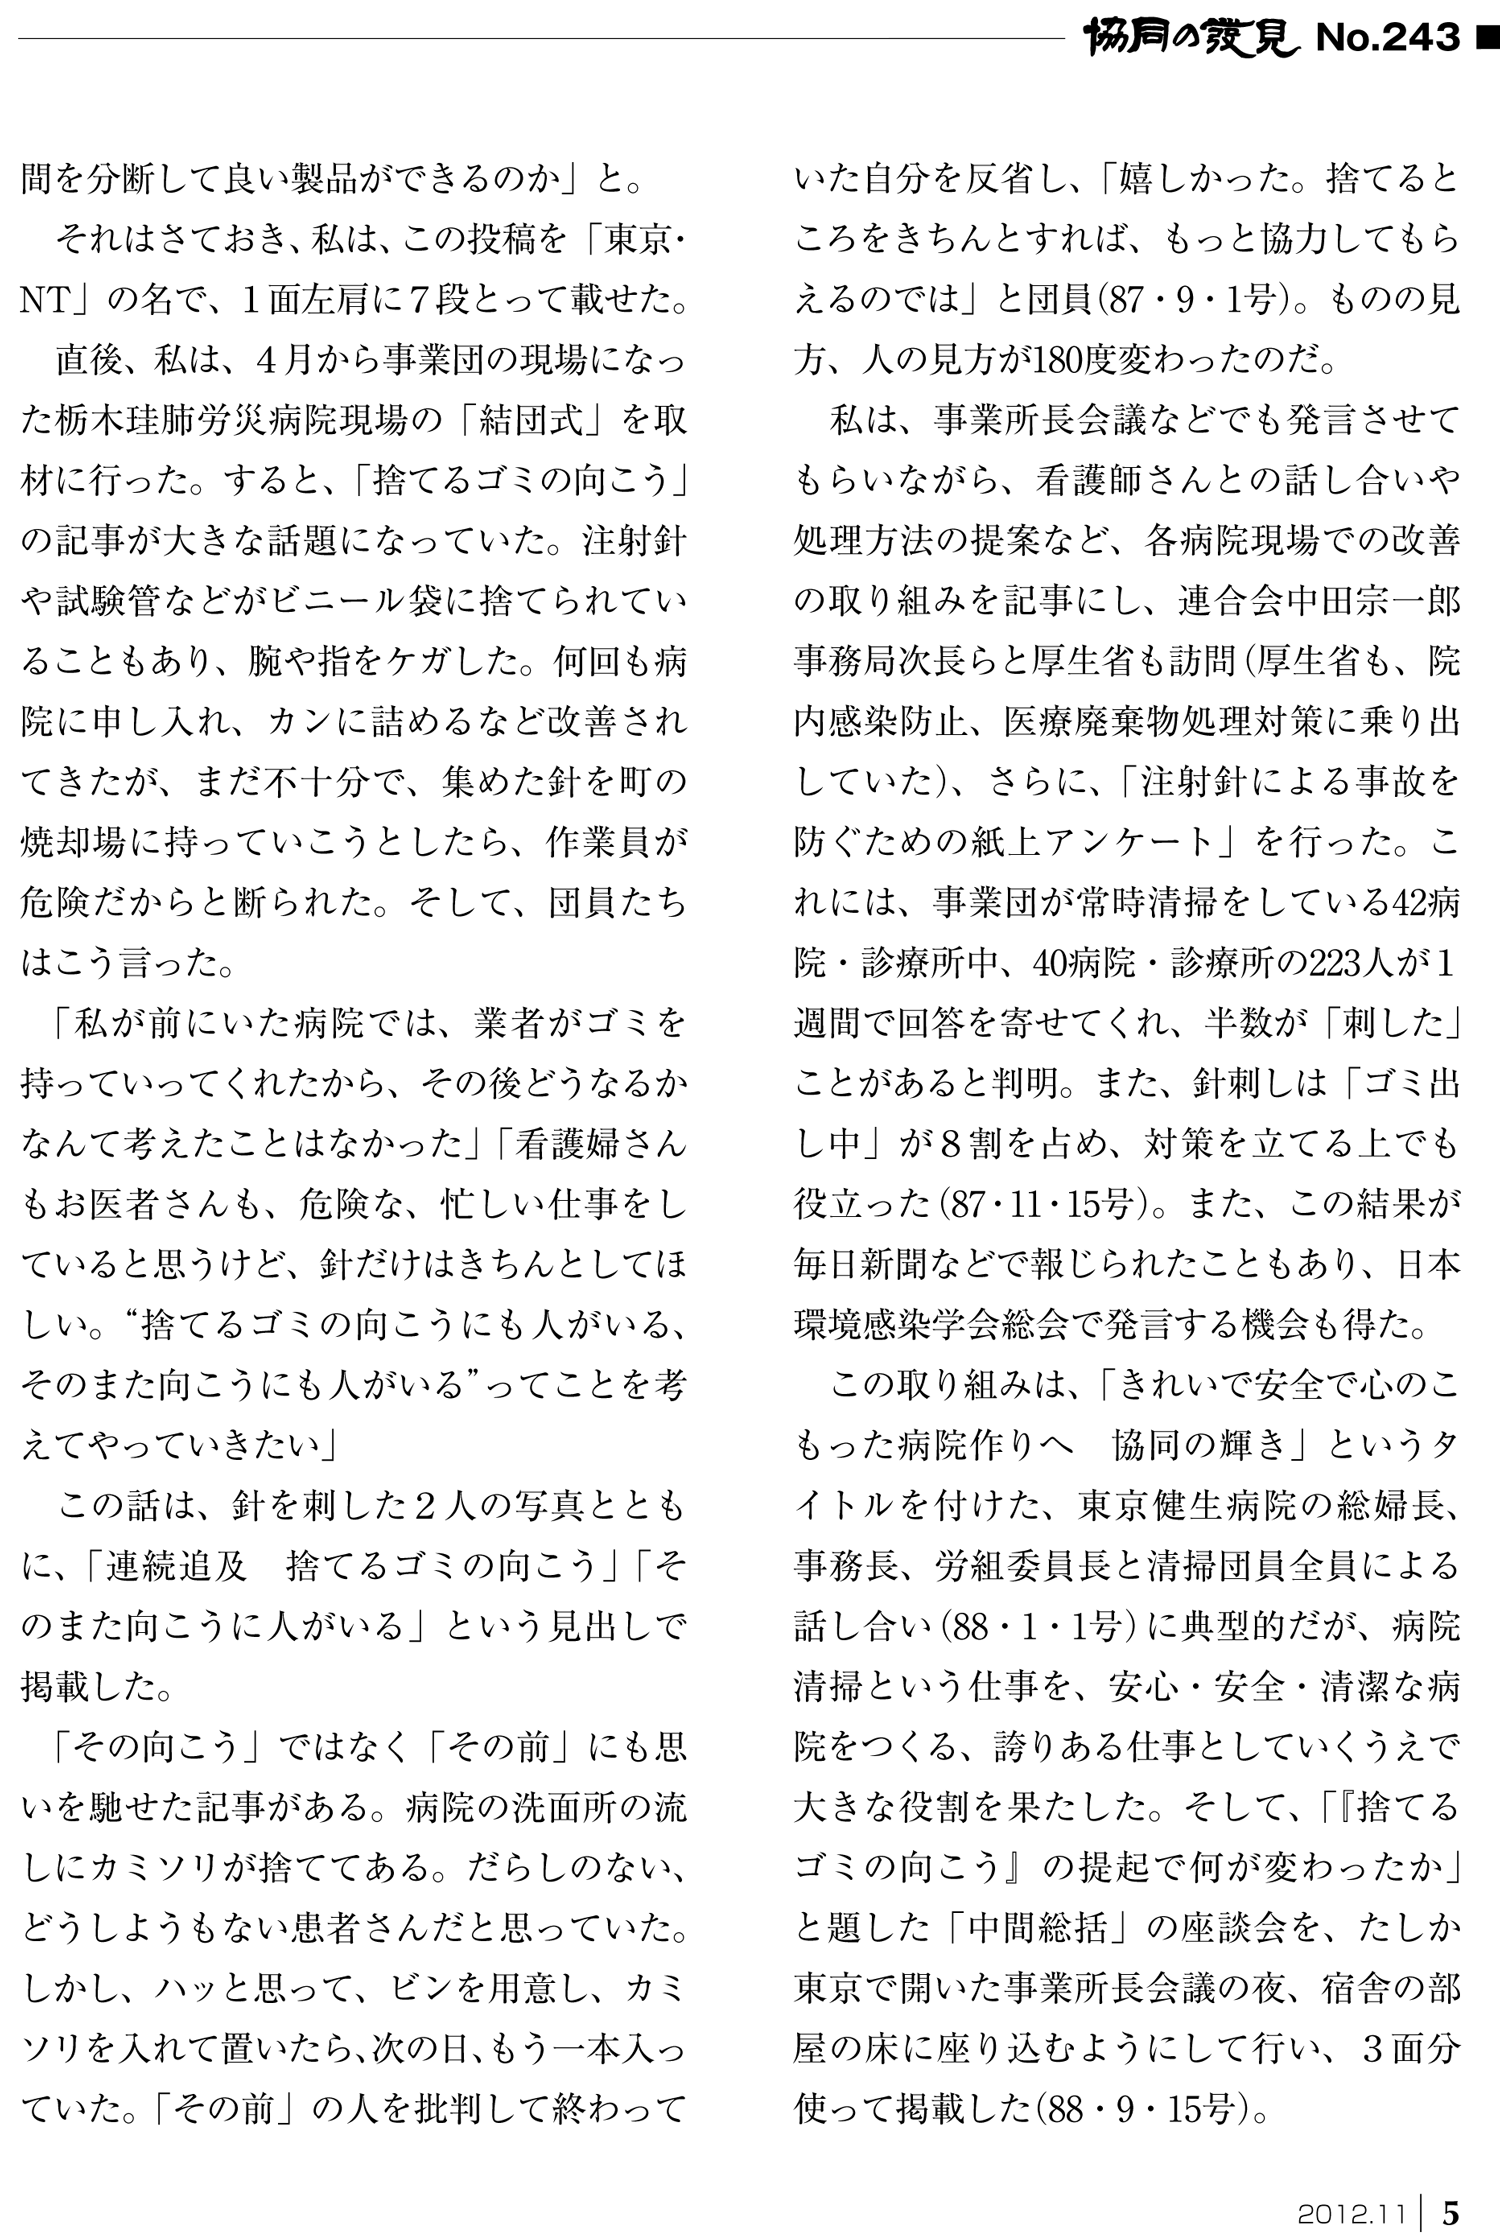 協同の發見 No.243
間を分断して良い製品ができるのか」と。
　それはさておき、私は、この投稿を「東京・
NT」の名で、１面左肩に７段とって載せた。
　直後、私は、４月から事業団の現場になっ
た栃木珪肺労災病院現場の「結団式」を取
材に行った。すると、「捨てるゴミの向こう」
の記事が大きな話題になっていた。注射針
や試験管などがビニール袋に捨てられてい
ることもあり、腕や指をケガした。何回も病
院に申し入れ、カンに詰めるなど改善され
てきたが、まだ不十分で、集めた針を町の
焼却場に持っていこうとしたら、作業員が
危険だからと断られた。そして、団員たち
はこう言った。
　「私が前にいた病院では、業者がゴミを
持っていってくれたから、その後どうなるか
なんて考えたことはなかった」「看護婦さん
もお医者さんも、危険な、忙しい仕事をし
ていると思うけど、針だけはきちんとしてほ
しい。“捨てるゴミの向こうにも人がいる、
そのまた向こうにも人がいる”ってことを考
えてやっていきたい」
　この話は、針を刺した２人の写真ととも
に、「連続追及　捨てるゴミの向こう」「そ
のまた向こうに人がいる」という見出しで
掲載した。
　「その向こう」ではなく「その前」にも思
いを馳せた記事がある。病院の洗面所の流
しにカミソリが捨ててある。だらしのない、
どうしようもない患者さんだと思っていた。
しかし、ハッと思って、ビンを用意し、カミ
ソリを入れて置いたら、次の日、もう一本入っ
ていた。「その前」の人を批判して終わって
いた自分を反省し、「嬉しかった。捨てると
ころをきちんとすれば、もっと協力してもら
えるのでは」と団員（87・9・1号）。ものの見
方、人の見方が180度変わったのだ。
　私は、事業所長会議などでも発言させて
もらいながら、看護師さんとの話し合いや
処理方法の提案など、各病院現場での改善
の取り組みを記事にし、連合会中田宗一郎
事務局次長らと厚生省も訪問（厚生省も、院
内感染防止、医療廃棄物処理対策に乗り出
していた）、さらに、「注射針による事故を
防ぐための紙上アンケート」を行った。こ
れには、事業団が常時清掃をしている42病
院・診療所中、40病院・診療所の223人が１
週間で回答を寄せてくれ、半数が「刺した」
ことがあると判明。また、針刺しは「ゴミ出
し中」が８割を占め、対策を立てる上でも
役立った（87・11・15号）。また、この結果が
毎日新聞などで報じられたこともあり、日本
環境感染学会総会で発言する機会も得た。
　この取り組みは、「きれいで安全で心のこ
もった病院作りへ　協同の輝き」というタ
イトルを付けた、東京健生病院の総婦長、
事務長、労組委員長と清掃団員全員による
話し合い（88・1・1号）に典型的だが、病院
清掃という仕事を、安心・安全・清潔な病
院をつくる、誇りある仕事としていくうえで
大きな役割を果たした。そして、「『捨てる
ゴミの向こう』の提起で何が変わったか」
と題した「中間総括」の座談会を、たしか
東京で開いた事業所長会議の夜、宿舎の部
屋の床に座り込むようにして行い、３面分
使って掲載した（88・9・15号）。
2012.11 5